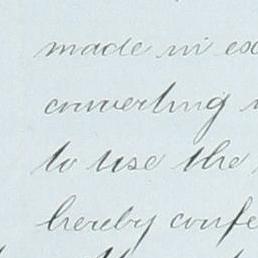 made in ex
converting
to use the
hereby confe